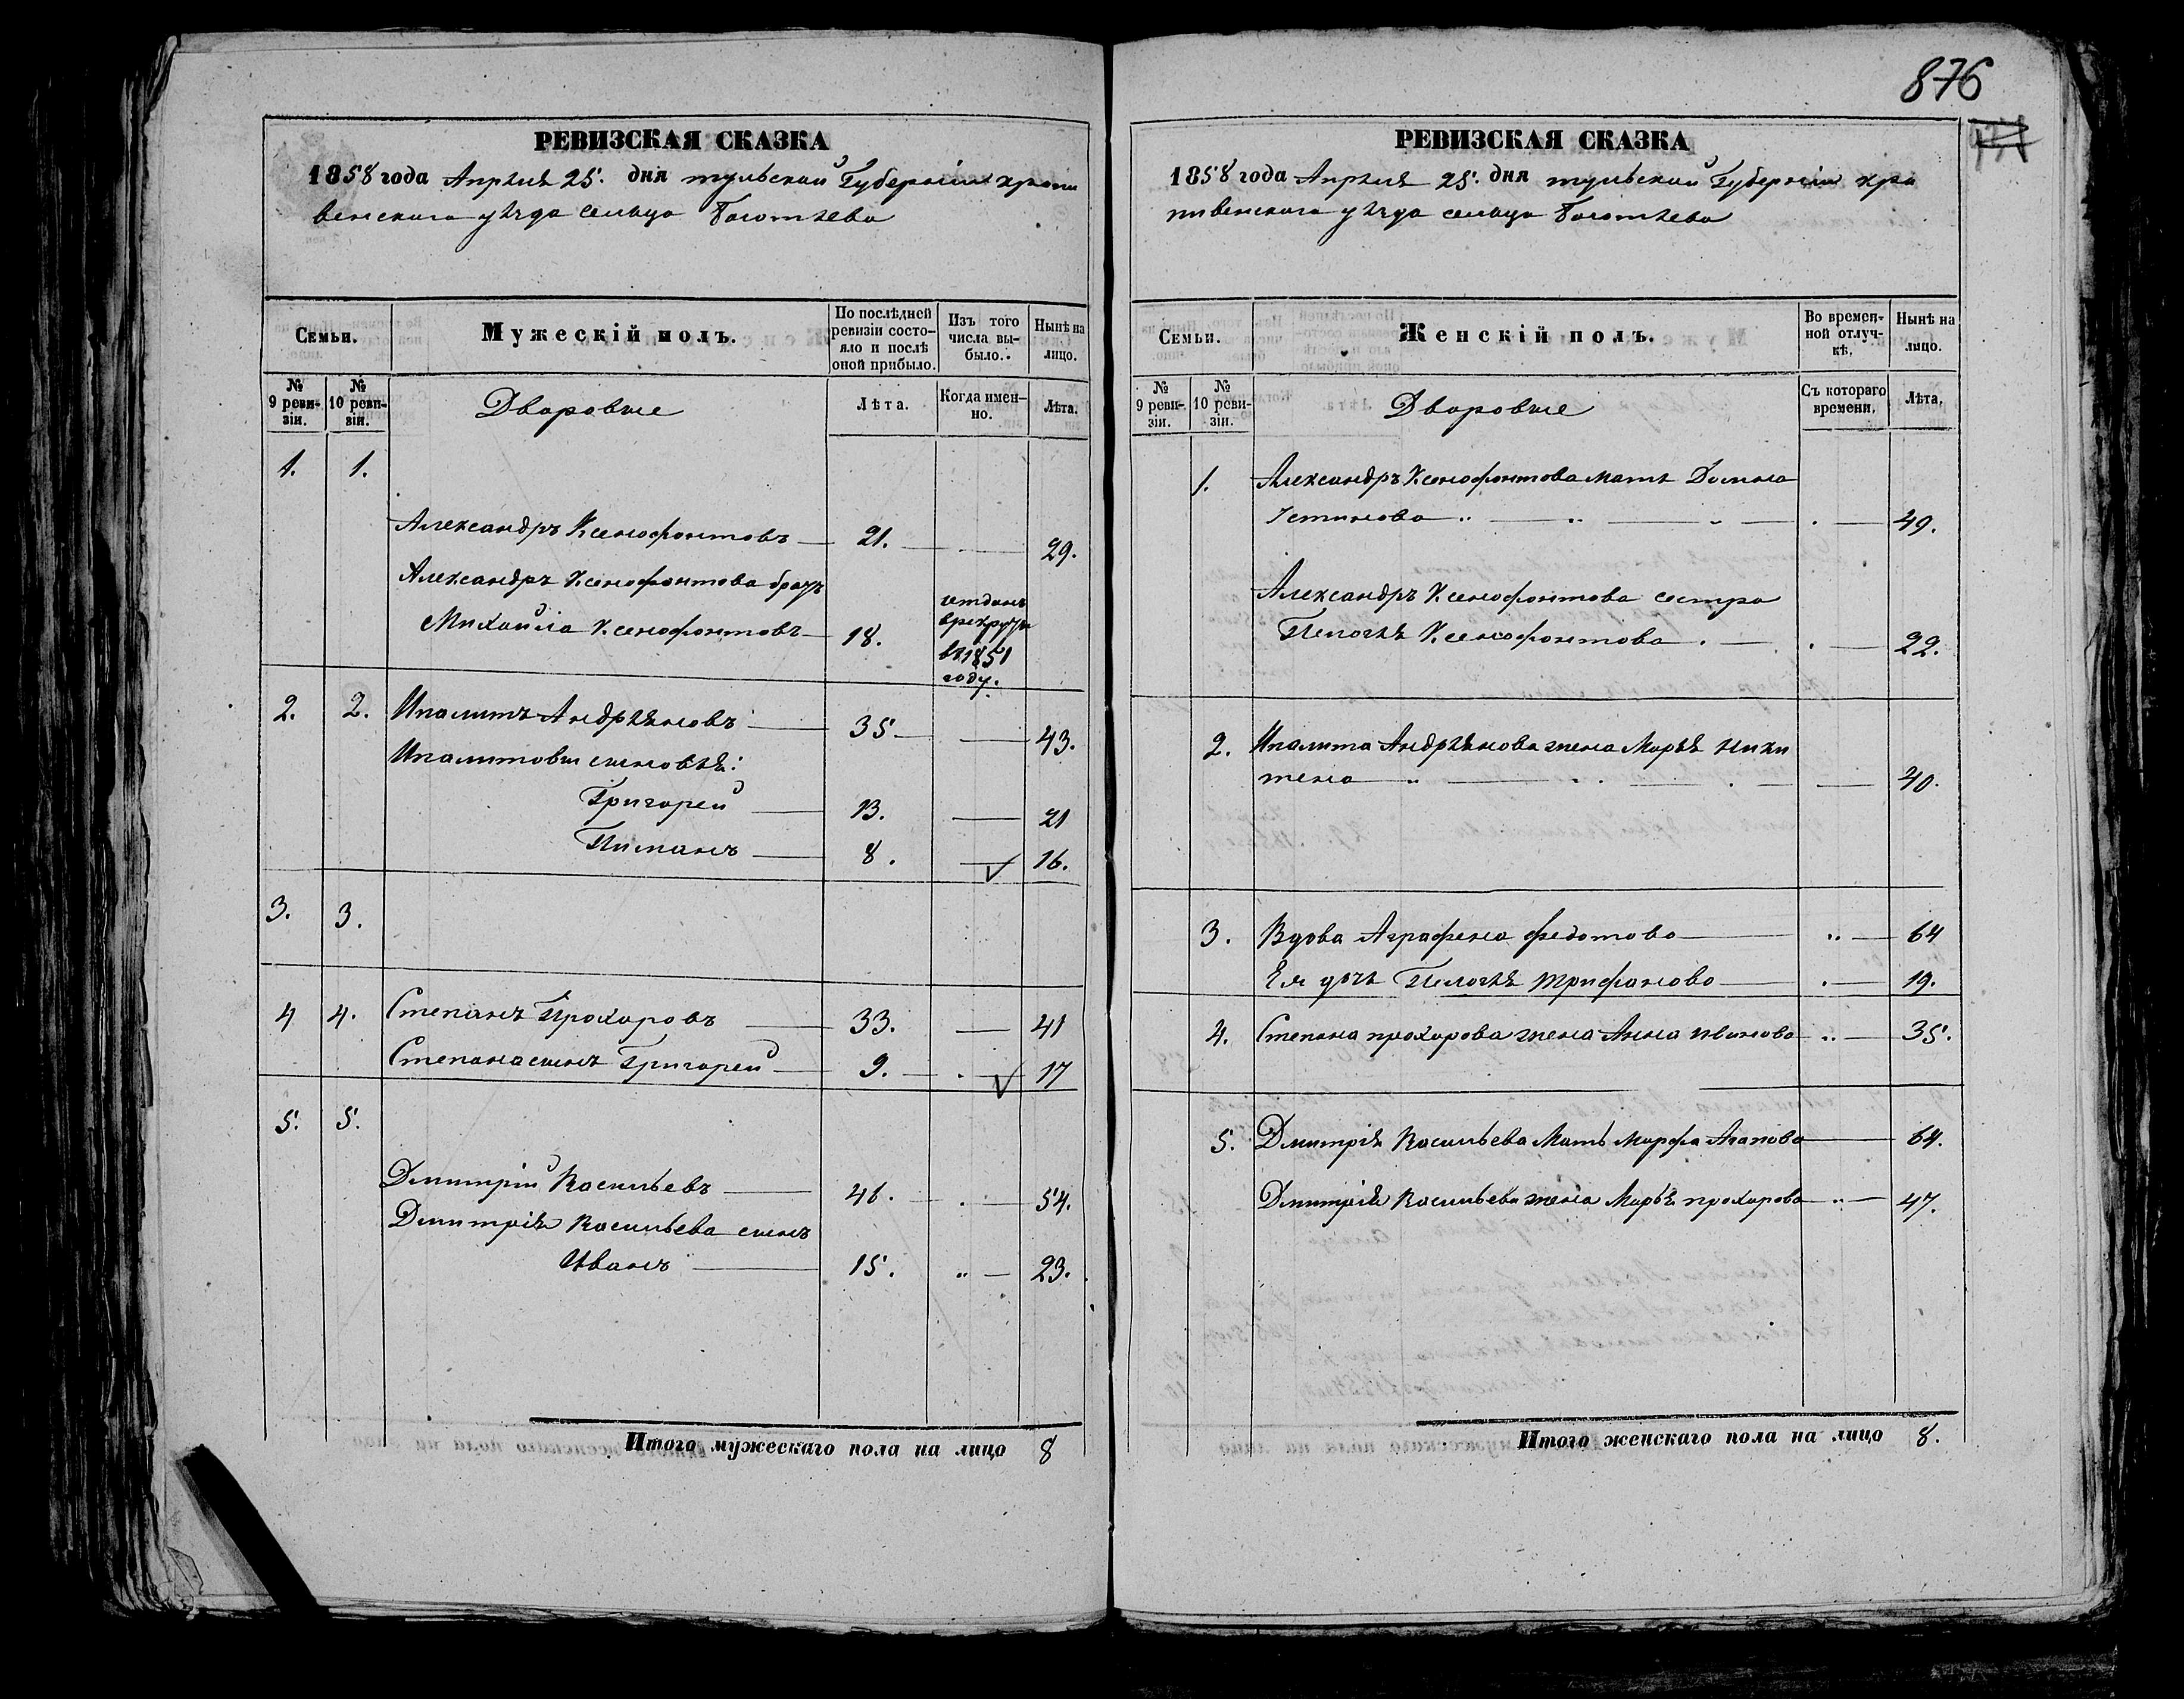 876
РЕВИЗСКАЯ СКАЗКА
1858 года Апрѣля 25. дня тульской Губерніи крапи
венскаго уѣзда сельца
Семьи.
Мужескій полъ.
По послѣдней ревизіи состояло и послѣ оной прибыло.
Изъ того числа выбыло.
Нынѣ на лицо.
№ 9 ревизіи.
№ 10 ревизіи.
Дворовые
Лѣта.
Когда именно.
Лѣта.
1. 1.
Александръ Ксенофонтовъ 21. 29.
Александръ Ксенофонтова братъ
Михайла Ксенофонтовъ 18. отданъ
врекруты
въ 1851
году.
2. 2. Ипалитъ Андрѣяновъ 35 43.
Ипалитовы сыновья:
Григорей 13. 21
Пиманъ 8. 16.
3. 3.
4 4. Степанъ Прохоровъ 33. 41
Степана сынъ Григорей 9. 17
5. 5.
Дмитрій Васильевъ 46. 54.
Дмитрія Васильева сынъ
Иванъ 15. 23.
Итого мужескаго пола на лицо 8
РЕВИЗСКАЯ СКАЗКА
1858 года Апрѣля 25. дня тульской Губерніи кра
пивенскаго уѣзда сельца
Семьи.
Женскій полъ.
Во временной отлучкѣ.
Нынѣ на лицо.
№ 9 ревизіи.
№ 10 ревизіи.
Дворовые
Съ котораго времени.
Лѣта.
1. Александръ Ксенофонтова мать Домна
Устинова 49.
Александръ Ксенофонтова сестра
Пелагѣя Ксенофонтова 22.
2. Ипалита Андрѣянова жена Марья Ники
тена 40.
3. Вдова Аграфена федотова 64
Ея дочь Пелагѣя трифанова 19.
4. Степана прохорова жена Анна иванова 35.
5. Дмитрія Васильева Мать Марфа Агапова 64.
Дмитрія Васильева жена Марья прохорова 47.
Итого женскаго пола на лицо 8.